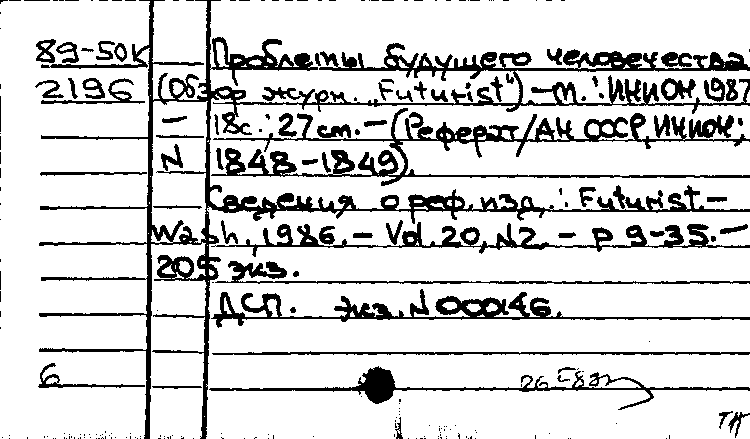 89-50к Проблемы будущего человечества
2196 (Обзор журн. „Futurist"). - М.: ИНИОН, 1987
- 18с.; 27 см. - (Реферат/АН СССР, ИНИОН;
N 1848-1849).
Сведения о реф. изд.: Futurist. -
Wash., 1986. - Vol. 20, N2. - P 9-35. -
205 экз.
ДСП. экз. N 000146.
6
ТК